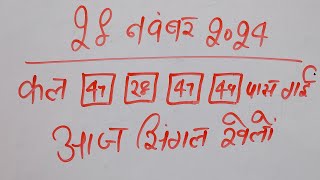 28 नवंबर 2024
कल 47 28 47 49 पास गई
आज सिंगल खेलों